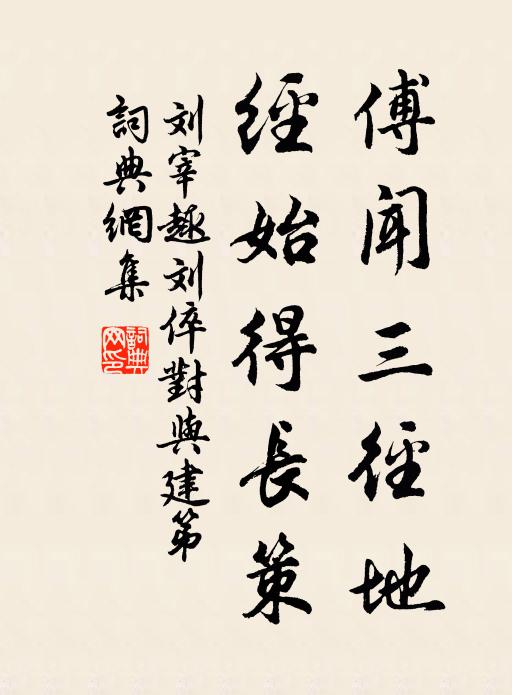 傅闻三徑地
經始得長策
刘宰趣刘倅對與建第
詞典網集
詞典網印